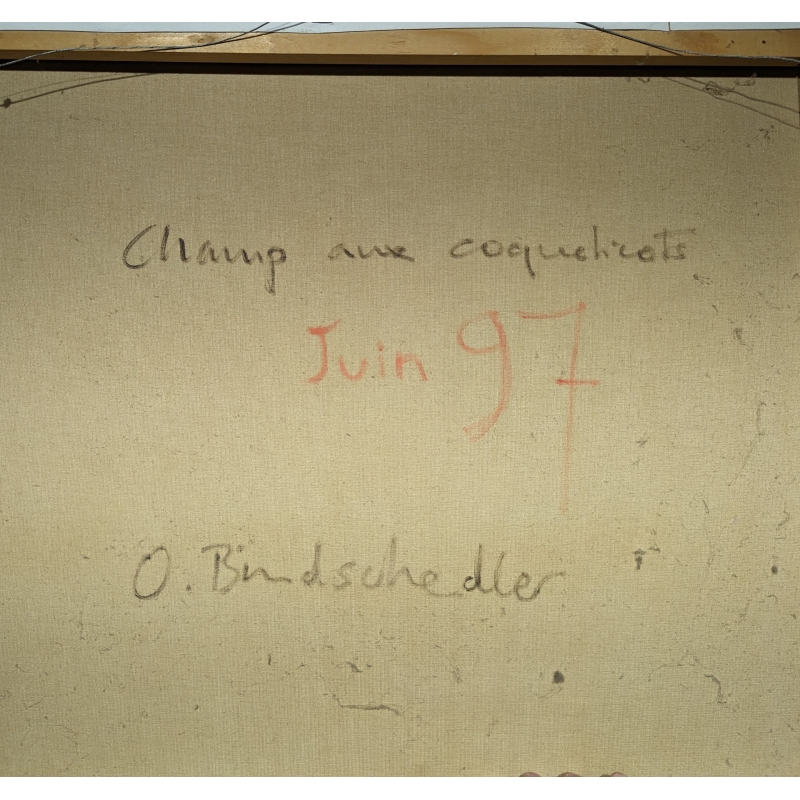 Champ aux coquelicots
Juin 97
O. Bindschedler